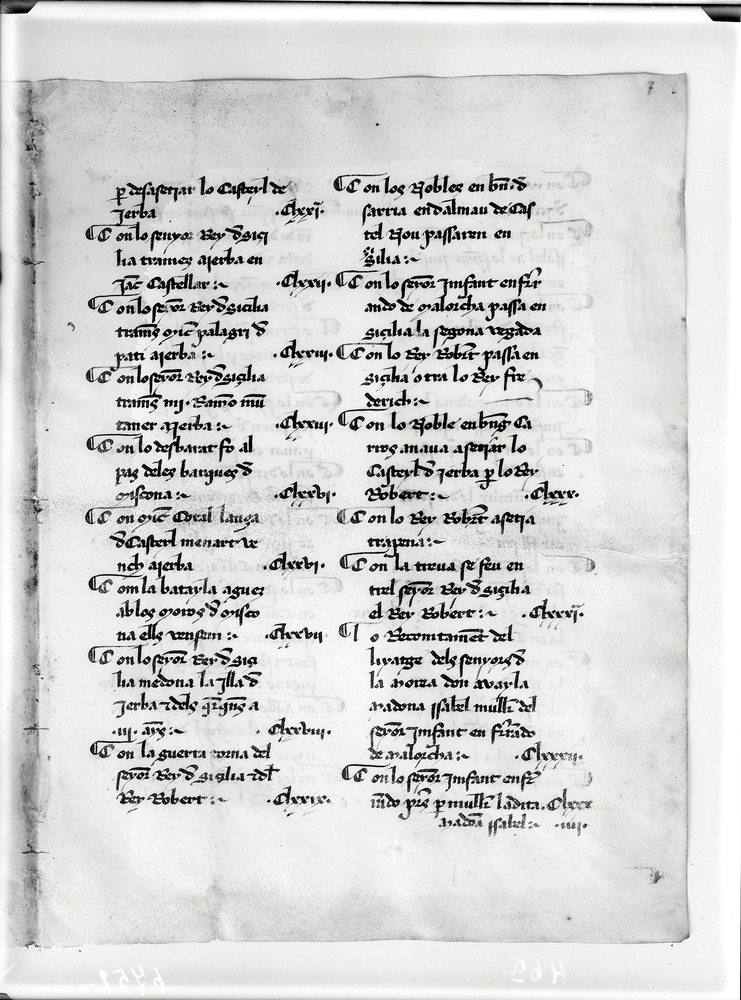 7
ꝑ desasetiar lo Casteyl de
Jerba .Clxxi.
Con lo senyor Rey d sici
lia trames a jerba en
Jac Castellar :~ .Clxxii.
Con lo seyor Rey d sicilia
trams mic palagri d
pati a jerba :~ .Clxxiii.
Con lo seyor Rey d sicilia
trams mi Ramo mū
taner a Jerba :~ .Clxxiiii.
Con lo desbarat fo al
pas deles barques d
miscona :~ .Clxxvi.
Con mic Coral lança
d Casteyl menart ve
nch a jerba .Clxxvi.
Com la batayla aguez
ab los moros d misco
na ells vensem :~ .Clxxvii
Con lo seyor Rey d sici
lia me dona la Jlla d
Jerba e dels qrqns a
.iii. ays :~ .Clxxviii.
Con la guerra torna del
seyor Rey d sigilia e dl
Rey Robert :~ .Clxxix.
Con los Nobles en bn. d
sarria en dalmau de Cas
tel Nou passaren en
Silia :~
Con lo seyor Jnfant en frr
ando de malorcha passa en
sigilia la segona vegada
Con lo Rey Robrt passa en
sigilia otra lo Rey fre
derich :~
Con lo Noble en bng Ca
rros anava a setiar lo
Casteyl d jerba ꝑ lo Rey
Robert :~ .Clxxx.
Con lo Rey Robrt asetia
trapena :~
Con la treva se feu en
trel seyor Rey d sigilia
el Rey Robert :~ .Clxxxii.
lo Recomtament del
liyatge dels senyors d
la morea don avayla
madona jsabel mullr del
seyor Jnfant en frrādo
de malorcha :~ .Clxxxii.
Con lo seyor Jnfant en fr
nādo prs ꝑ mullr la dita .Clxxx
madōa jsabel :~ .iiii.
6759
463